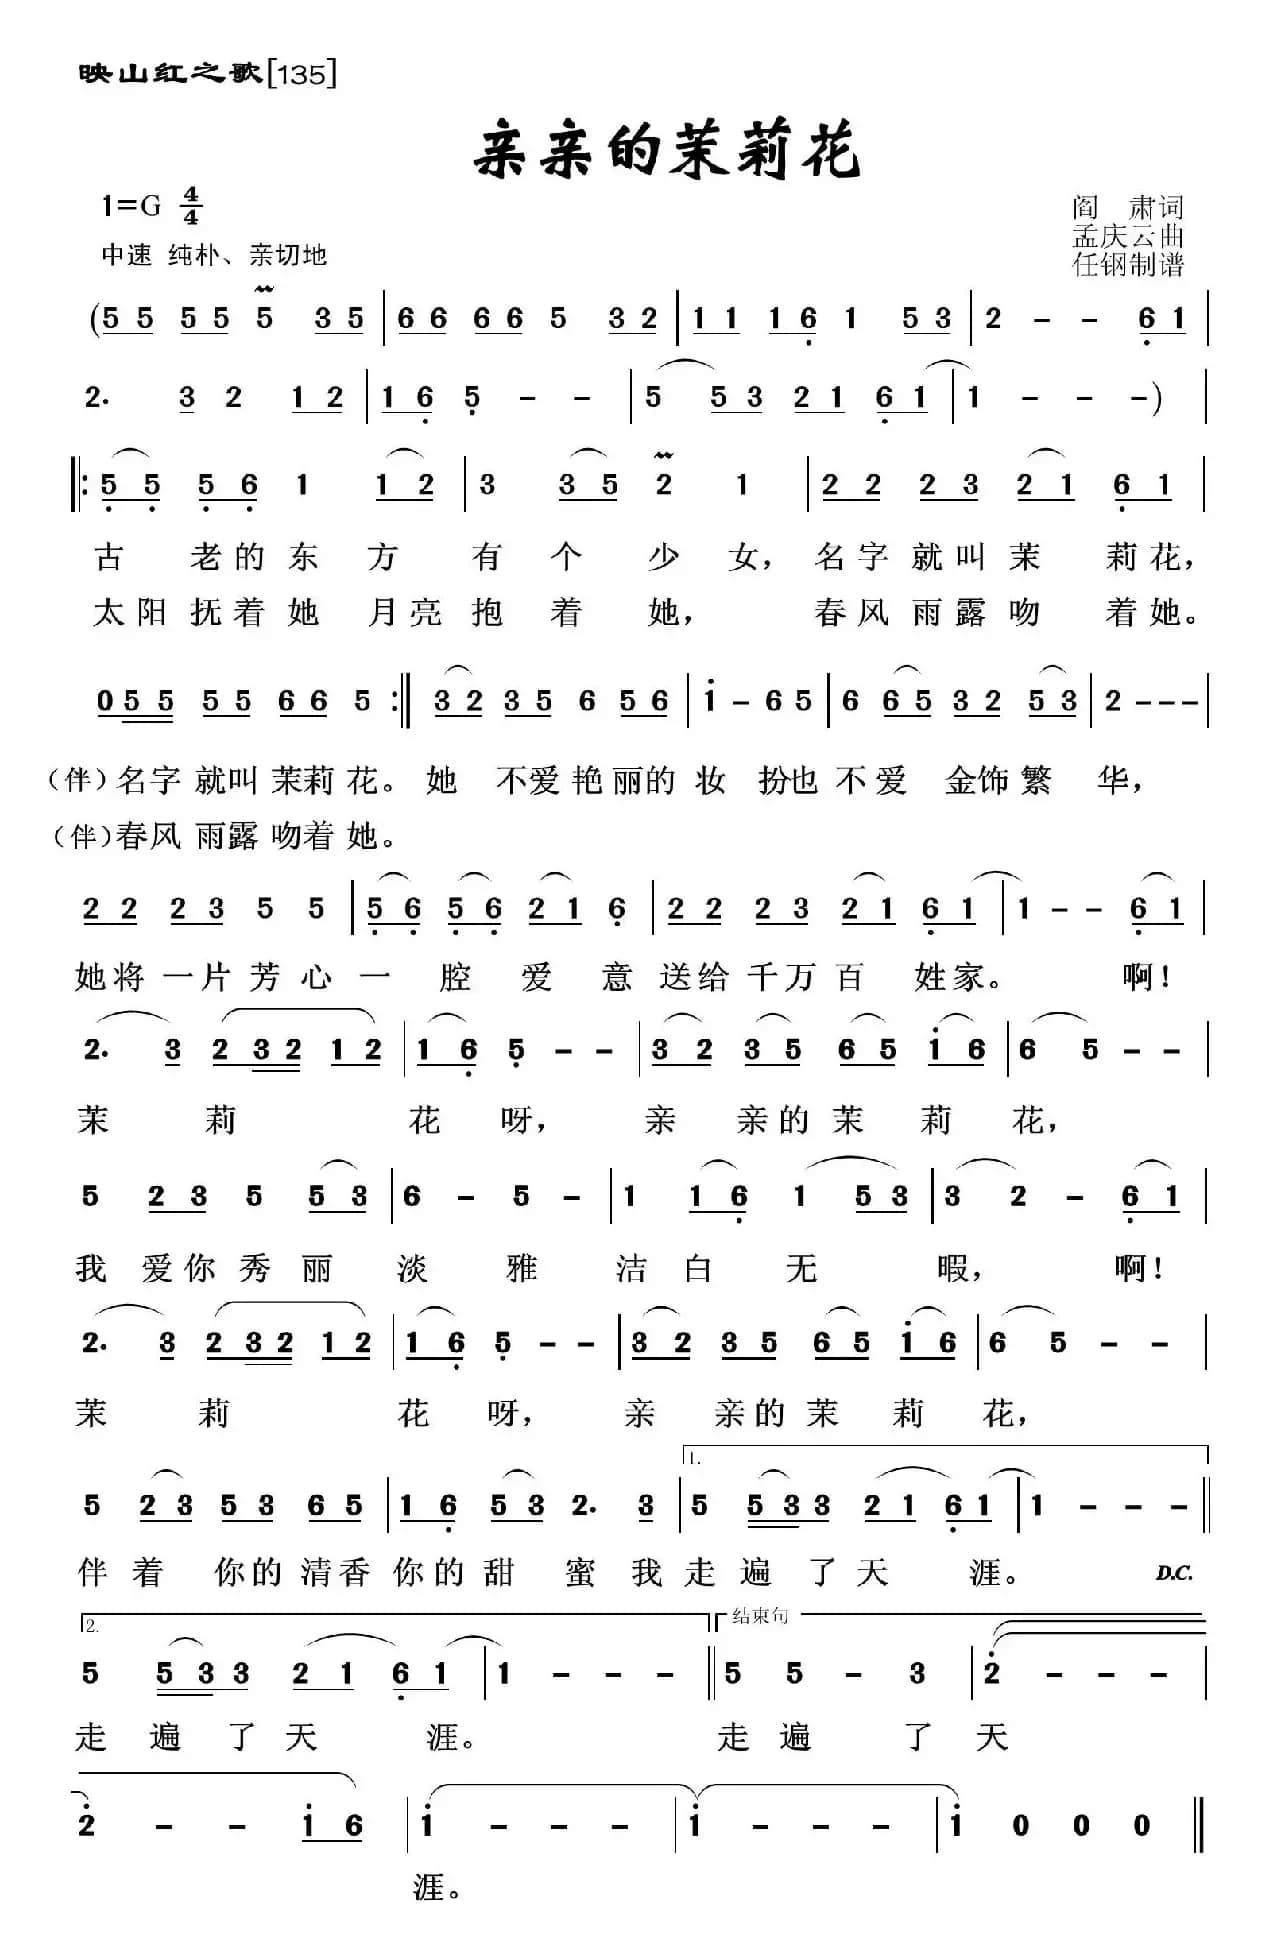 映山红之歌[135]
亲亲的茉莉花
1=G 4/4
阎 肃词
孟庆云曲
中速 纯朴、亲切地
任钢制谱
(5 5 5 5 5 3 5 | 6 6 6 6 5 3 2 | 1 1 1 6 1 5 3 | 2 - - 6 1 |
2. 3 2 1 2 | 1 6 5 - - | 5 5 3 2 1 6 1 | 1 - - -) |
|: 5 5 5 6 1 1 2 | 3 3 5 2 1 | 2 2 2 3 2 1 6 1 |
古 老的东方有个少女，名字就叫茉 莉花，
太阳抚着她月亮抱着她，春风雨露吻 着她。
0 5 5 5 5 6 6 5 :| 3 2 3 5 6 5 6 | 1 - 6 5 | 6 6 5 3 2 5 3 | 2 - - - |
（伴）名字就叫茉莉花。她 不爱艳丽的妆 扮也不爱 金饰繁 华，
（伴）春风雨露吻着她。
2 2 2 3 5 5 | 5 6 5 6 2 1 6 | 2 2 2 3 2 1 6 1 | 1 - - 6 1 |
她将一片芳心一 腔 爱 意送给千万百 姓家。 啊！
2. 3 2 3 2 1 2 | 1 6 5 - - | 3 2 3 5 6 5 1 6 | 6 5 - - |
茉 莉 花 呀，亲 亲的茉 莉 花，
5 2 3 5 5 3 | 6 - 5 - | 1 1 6 1 5 3 | 3 2 - 6 1 |
我 爱你秀丽 淡 雅 洁白无 暇， 啊！
2. 3 2 3 2 1 2 | 1 6 5 - - | 3 2 3 5 6 5 1 6 | 6 5 - - |
茉 莉 花 呀，亲 亲的茉 莉 花，
1.
5 2 3 5 3 6 5 | 1 6 5 3 2. 3 | 5 5 3 3 2 1 6 1 | 1 - - - ||
伴着 你的清香你的甜 蜜我走遍 了天 涯。 D.C.
2. 结束句
5 5 3 3 2 1 6 1 | 1 - - - || 5 5 - 3 | 2 - - - |
走 遍 了天 涯。 走遍 了天
2 - - 1 6 | 1 - - - | 1 - - - | 1 0 0 0 ||
涯。